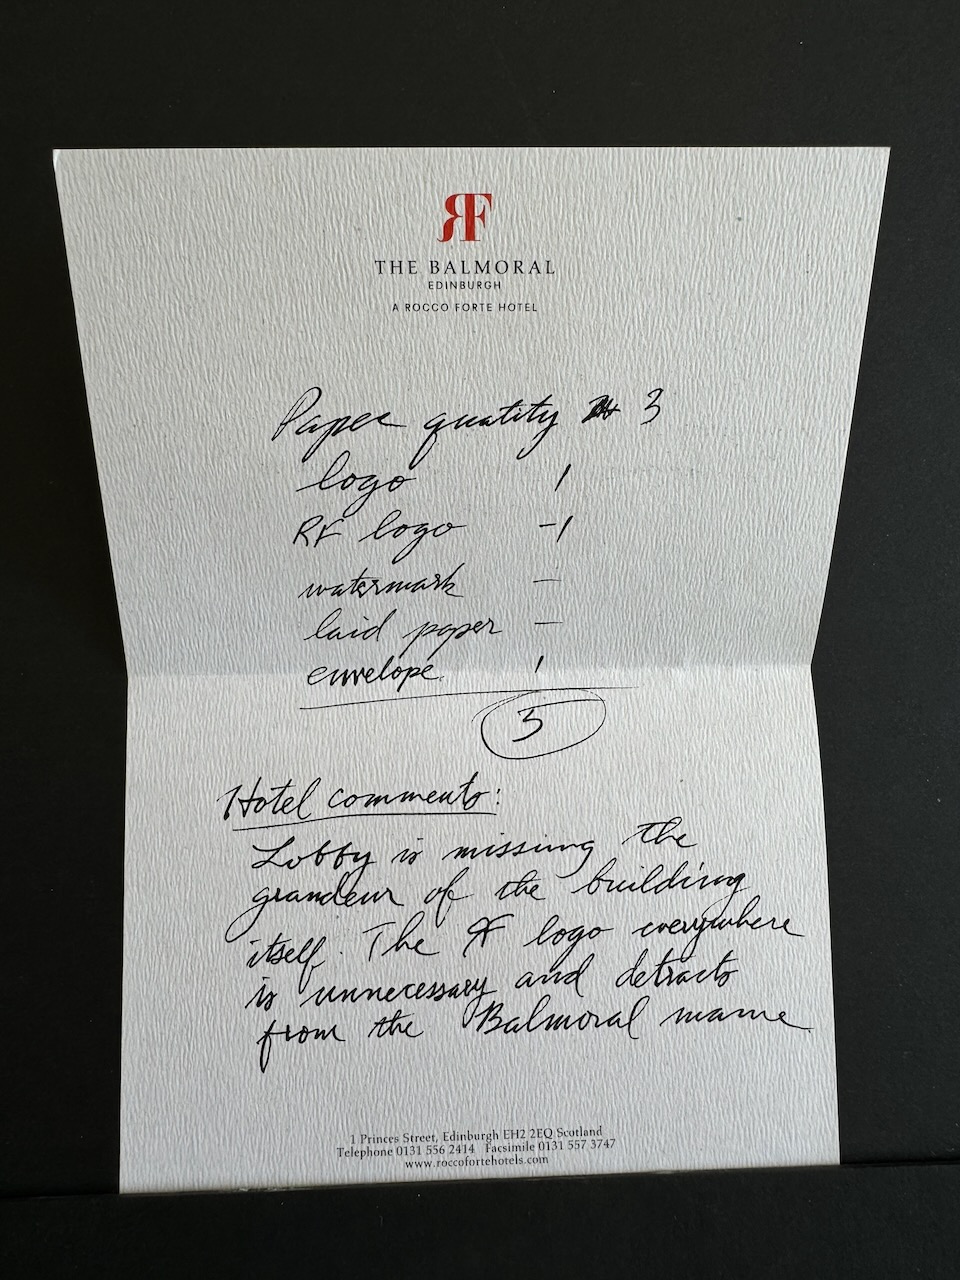 RF
THE BALMORAL
EDINBURGH
A ROCCO FORTE HOTEL
Paper quality 3
logo 1
RF logo -1
watermark —
laid paper —
envelope. 1
3
Hotel comments:
Lobby is missing the
grandeur of the building
itself. The RF logo everywhere
is unnecessary and detracts
from the Balmoral name
1 Princes Street, Edinburgh EH2 2EQ Scotland
Telephone 0131 556 2414 Facsimile 0131 557 3747
www.roccofortehotels.com